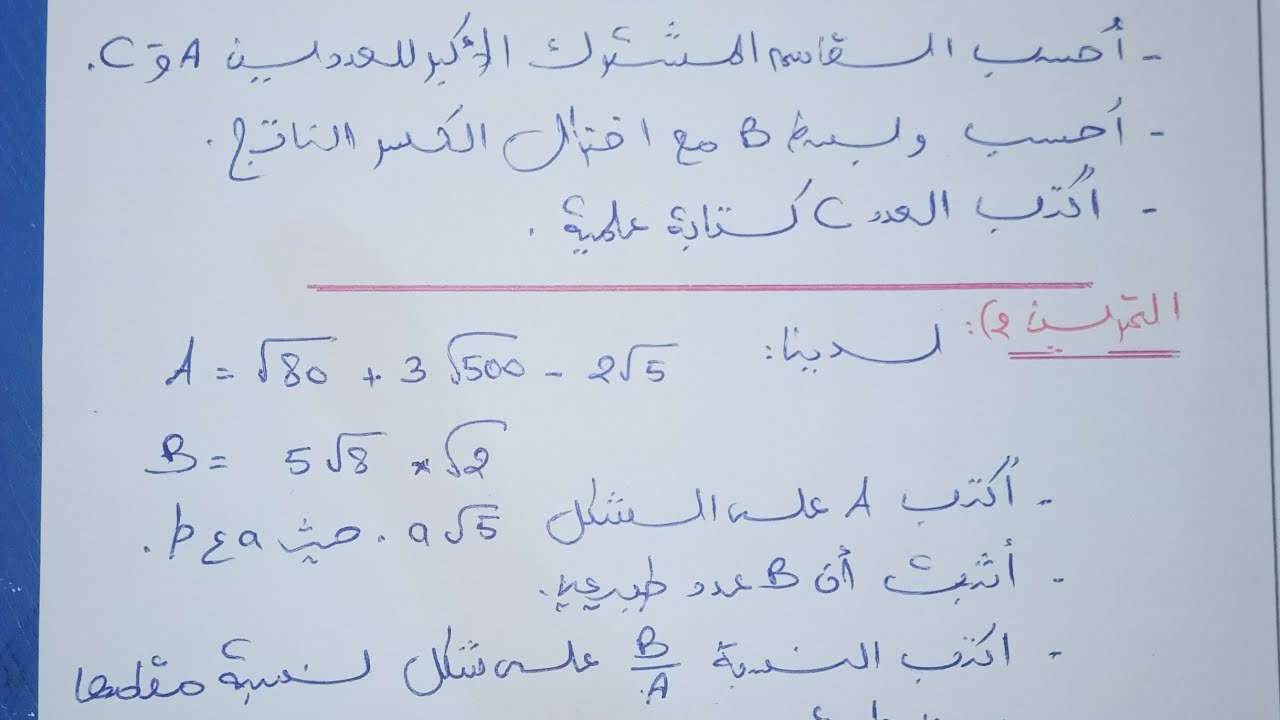 - أحسب القاسم المشترك الأكبر للعددين A و C.
- أحسب وبسط B مع اختزال الكسر الناتج.
- أكتب العدد C كتابة علمية.
التمرين 2): لدينا:
A = √80 + 3√500 - 2√5
B = 5√8 × √2
- أكتب A على الشكل a√5 . حيث a ع ط.
- أثبت أن B عدد طبيعي.
- اكتب النسبة B/A على شكل نسبة مقامها